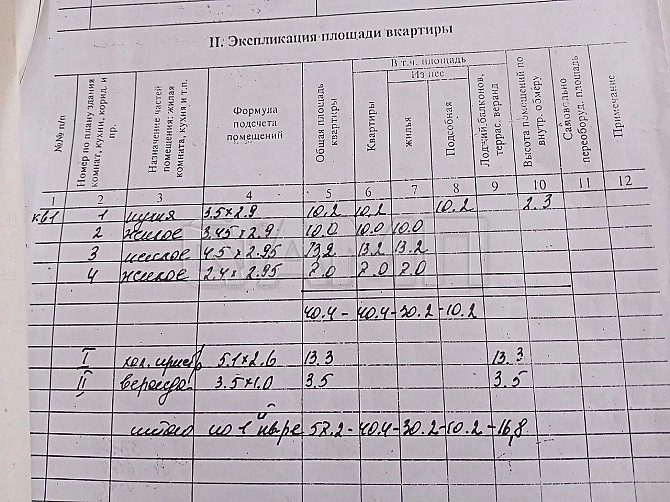 II. Экспликация площади вквартиры
№№ п/п
Номер по плану здания комнат, кухни, корид. и пр.
Назначение частей помещения: жилая комната, кухня и т.п.
Формула подсчета помещений
Общая площадь квартиры
В т.ч. площадь
Из нее
Квартиры
жилья
Подсобная
Лоджий, балконов, террас, веранд
Высота помещений по внутр. обмеру
Самовольно переоборуд. площадь
Примечание
1 2 3 4 5 6 7 8 9 10 11 12
кв1 1 кухня 3.5×2.9 10.2 10.2 10.2 2.3
2 жилое 3.45×2.9 10.0 10.0 10.0
3 жилое 4.5×2.95 13.2 13.2 13.2
4 жилое 2.4×2.95 7.0 7.0 7.0
40.4 - 40.4 - 30.2 - 10.2
I хол. прист. 5.1×2.6 13.3 13.3
II веранда 3.5×1.0 3.5 3.5
итого по 1й кв-ре 57.2 - 40.4 - 30.2 - 10.2 - 16,8